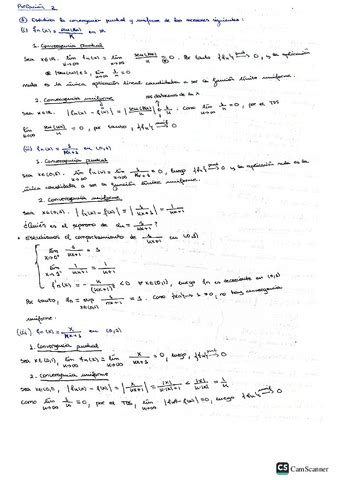 RELACIÓN 2
① Estudiar la convergencia puntual y uniforme de las sucesiones siguientes:
(i) fn(x) = sen(nx)/n en ℝ
1. Convergencia puntual
Sea x∈ℝ. lim n→∞ fn(x) = lim n→∞ sen(nx)/n = 0. Por tanto {fn} → 0, y la aplicación
nula es la única aplicación candidata a ser la función límite uniforme.
2. Convergencia uniforme
no dependen de la x
Sea x∈ℝ. |fn(x) - f(x)| = |sen(nx)/n| ≤ 1/n. Como lim n→∞ 1/n = 0, por el TDS
lim n→∞ sen(nx)/n = 0, por tanto, {fn} → 0
(ii) fn(x) = 1/nx+1 en (0,1)
1. Convergencia puntual
Sea x∈(0,1). lim n→∞ fn(x) = lim n→∞ 1/nx+1 = 0, luego {fn} → 0 y la aplicación nula es la
única candidata a ser la función límite uniforme.
2. Convergencia uniforme
Sea x∈(0,1), |fn(x) - f(x)| = |1/nx+1| = 1/nx+1
¿Quién es el supremo de 1/nx+1?
• Estudiamos el comportamiento de 1/nx+1 en (0,1)
lim x→0⁺ 1/nx+1 = 1
lim x→1⁻ 1/nx+1 = 1/n+1
f'n(x) = - n/(nx+1)² < 0 ∀x∈(0,1), luego fn es decreciente en (0,1)
Por tanto, sup 1/nx+1 = 1. Como 1 ≠ 0, no hay convergencia
uniforme.
(iii) fn(x) = x/nx+1 en (0,1)
1. Convergencia puntual
Sea x∈(0,1), lim n→∞ fn(x) = lim n→∞ x/nx+1 = 0, luego, {fn} → 0
2. Convergencia uniforme
Sea x∈(0,1), |fn(x) - f(x)| = |x/nx+1| = |x|/|nx+1| < |x|/n|x| = 1/n
Como lim n→∞ 1/n = 0, por el TDS, lim n→∞ |fn(x) - f(x)| = 0, luego {fn} → 0
CS CamScanner